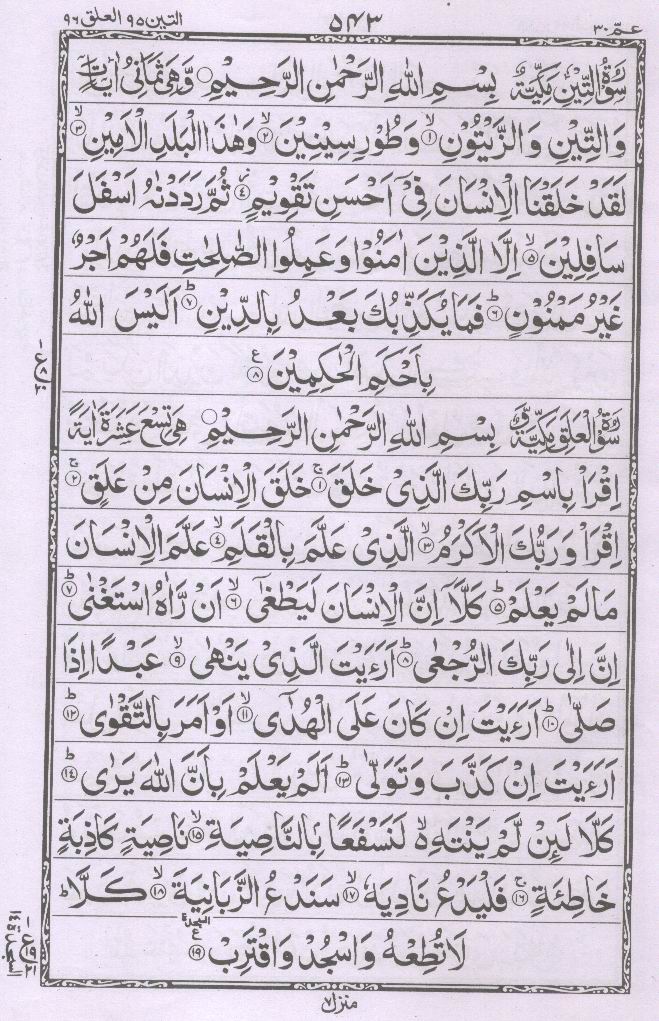 عمّ ۳۰ ۵۴۳ التین ۹۵ العلق ۹۶
سُوْرَةُ التِّيْنِ مَكِّيَّةٌ بِسْمِ اللّٰهِ الرَّحْمٰنِ الرَّحِيْمِ وَّهِيَ ثَمَانِيْ اٰيَاتٍ
وَالتِّيْنِ وَالزَّيْتُوْنِ ۙ‏﴿۱﴾ وَطُوْرِ سِيْنِيْنَ ۙ‏﴿۲﴾ وَهٰذَا الْبَلَدِ الْاَمِيْنِ ۙ‏﴿۳﴾
لَقَدْ خَلَقْنَا الْاِنْسَانَ فِيْۤ اَحْسَنِ تَقْوِيْمٍ ﴿۴﴾ ثُمَّ رَدَدْنٰهُ اَسْفَلَ
سَافِلِيْنَ ۙ‏﴿۵﴾ اِلَّا الَّذِيْنَ اٰمَنُوْا وَعَمِلُوا الصّٰلِحٰتِ فَلَهُمْ اَجْرٌ
غَيْرُ مَمْنُوْنٍ ؕ‏﴿۶﴾ فَمَا يُكَذِّبُكَ بَعْدُ بِالدِّيْنِ ؕ‏﴿۷﴾ اَلَيْسَ اللّٰهُ
بِاَحْكَمِ الْحٰكِمِيْنَ ﴿۸﴾
سُوْرَةُ الْعَلَقِ مَكِّيَّةٌ وَّ بِسْمِ اللّٰهِ الرَّحْمٰنِ الرَّحِيْمِ هِيَ تِسْعَ عَشْرَةَ اٰيَةً
اِقْرَاْ بِاسْمِ رَبِّكَ الَّذِيْ خَلَقَ ۚ‏﴿۱﴾ خَلَقَ الْاِنْسَانَ مِنْ عَلَقٍ ۚ‏﴿۲﴾
اِقْرَاْ وَرَبُّكَ الْاَكْرَمُ ۙ‏﴿۳﴾ الَّذِيْ عَلَّمَ بِالْقَلَمِ ۙ‏﴿۴﴾ عَلَّمَ الْاِنْسَانَ
مَا لَمْ يَعْلَمْ ؕ‏﴿۵﴾ كَلَّاۤ اِنَّ الْاِنْسَانَ لَيَطْغٰۤى ۙ‏﴿۶﴾ اَنْ رَّاٰهُ اسْتَغْنٰى ؕ‏﴿۷﴾
اِنَّ اِلٰى رَبِّكَ الرُّجْعٰى ؕ‏﴿۸﴾ اَرَءَيْتَ الَّذِيْ يَنْهٰى ۙ‏﴿۹﴾ عَبْدًا اِذَا
صَلّٰى ؕ‏﴿۱۰﴾ اَرَءَيْتَ اِنْ كَانَ عَلَى الْهُدٰٓى ۙ‏﴿۱۱﴾ اَوْ اَمَرَ بِالتَّقْوٰى ؕ‏﴿۱۲﴾
اَرَءَيْتَ اِنْ كَذَّبَ وَتَوَلّٰى ؕ‏﴿۱۳﴾ اَلَمْ يَعْلَمْ بِاَنَّ اللّٰهَ يَرٰى ؕ‏﴿۱۴﴾
كَلَّا لَئِنْ لَّمْ يَنْتَهِ ۙ لَنَسْفَعًا بِالنَّاصِيَةِ ۙ‏﴿۱۵﴾ نَاصِيَةٍ كَاذِبَةٍ
خَاطِئَةٍ ۚ‏﴿۱۶﴾ فَلْيَدْعُ نَادِيَهٗ ۙ‏﴿۱۷﴾ سَنَدْعُ الزَّبَانِيَةَ ۙ‏﴿۱۸﴾ كَلَّا ؕ
لَا تُطِعْهُ وَاسْجُدْ وَاقْتَرِبْ ۩ ﴿۱۹﴾
منزل ۷